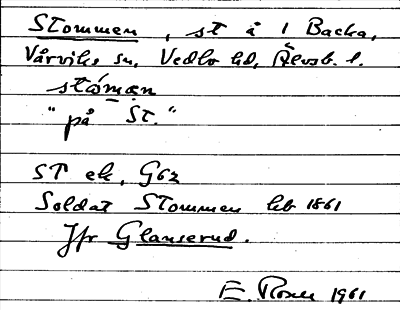 Stommen, st å 1 Backa,
Vårviks sn, Vedbo hd, Älvsb. l.
stómæn
"på St."
ST ek, G62
Soldat Stommen hb 1861
Jfr Glanserud.
E. Rosell 1961